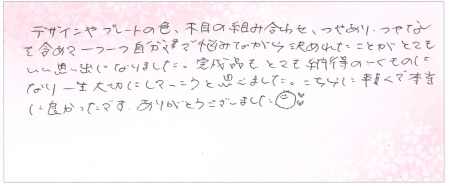 デザインやプレートの色、木目の組み合わせ、つやあり・つやなし
を含めて一つ一つ自分達で悩みながら決めれたことがとても
いい思い出になりました。完成品もとても納得のいくものに
なり一生大切にしていこうと思いました。こちらに頼んで本当
に良かったです。ありがとうございました